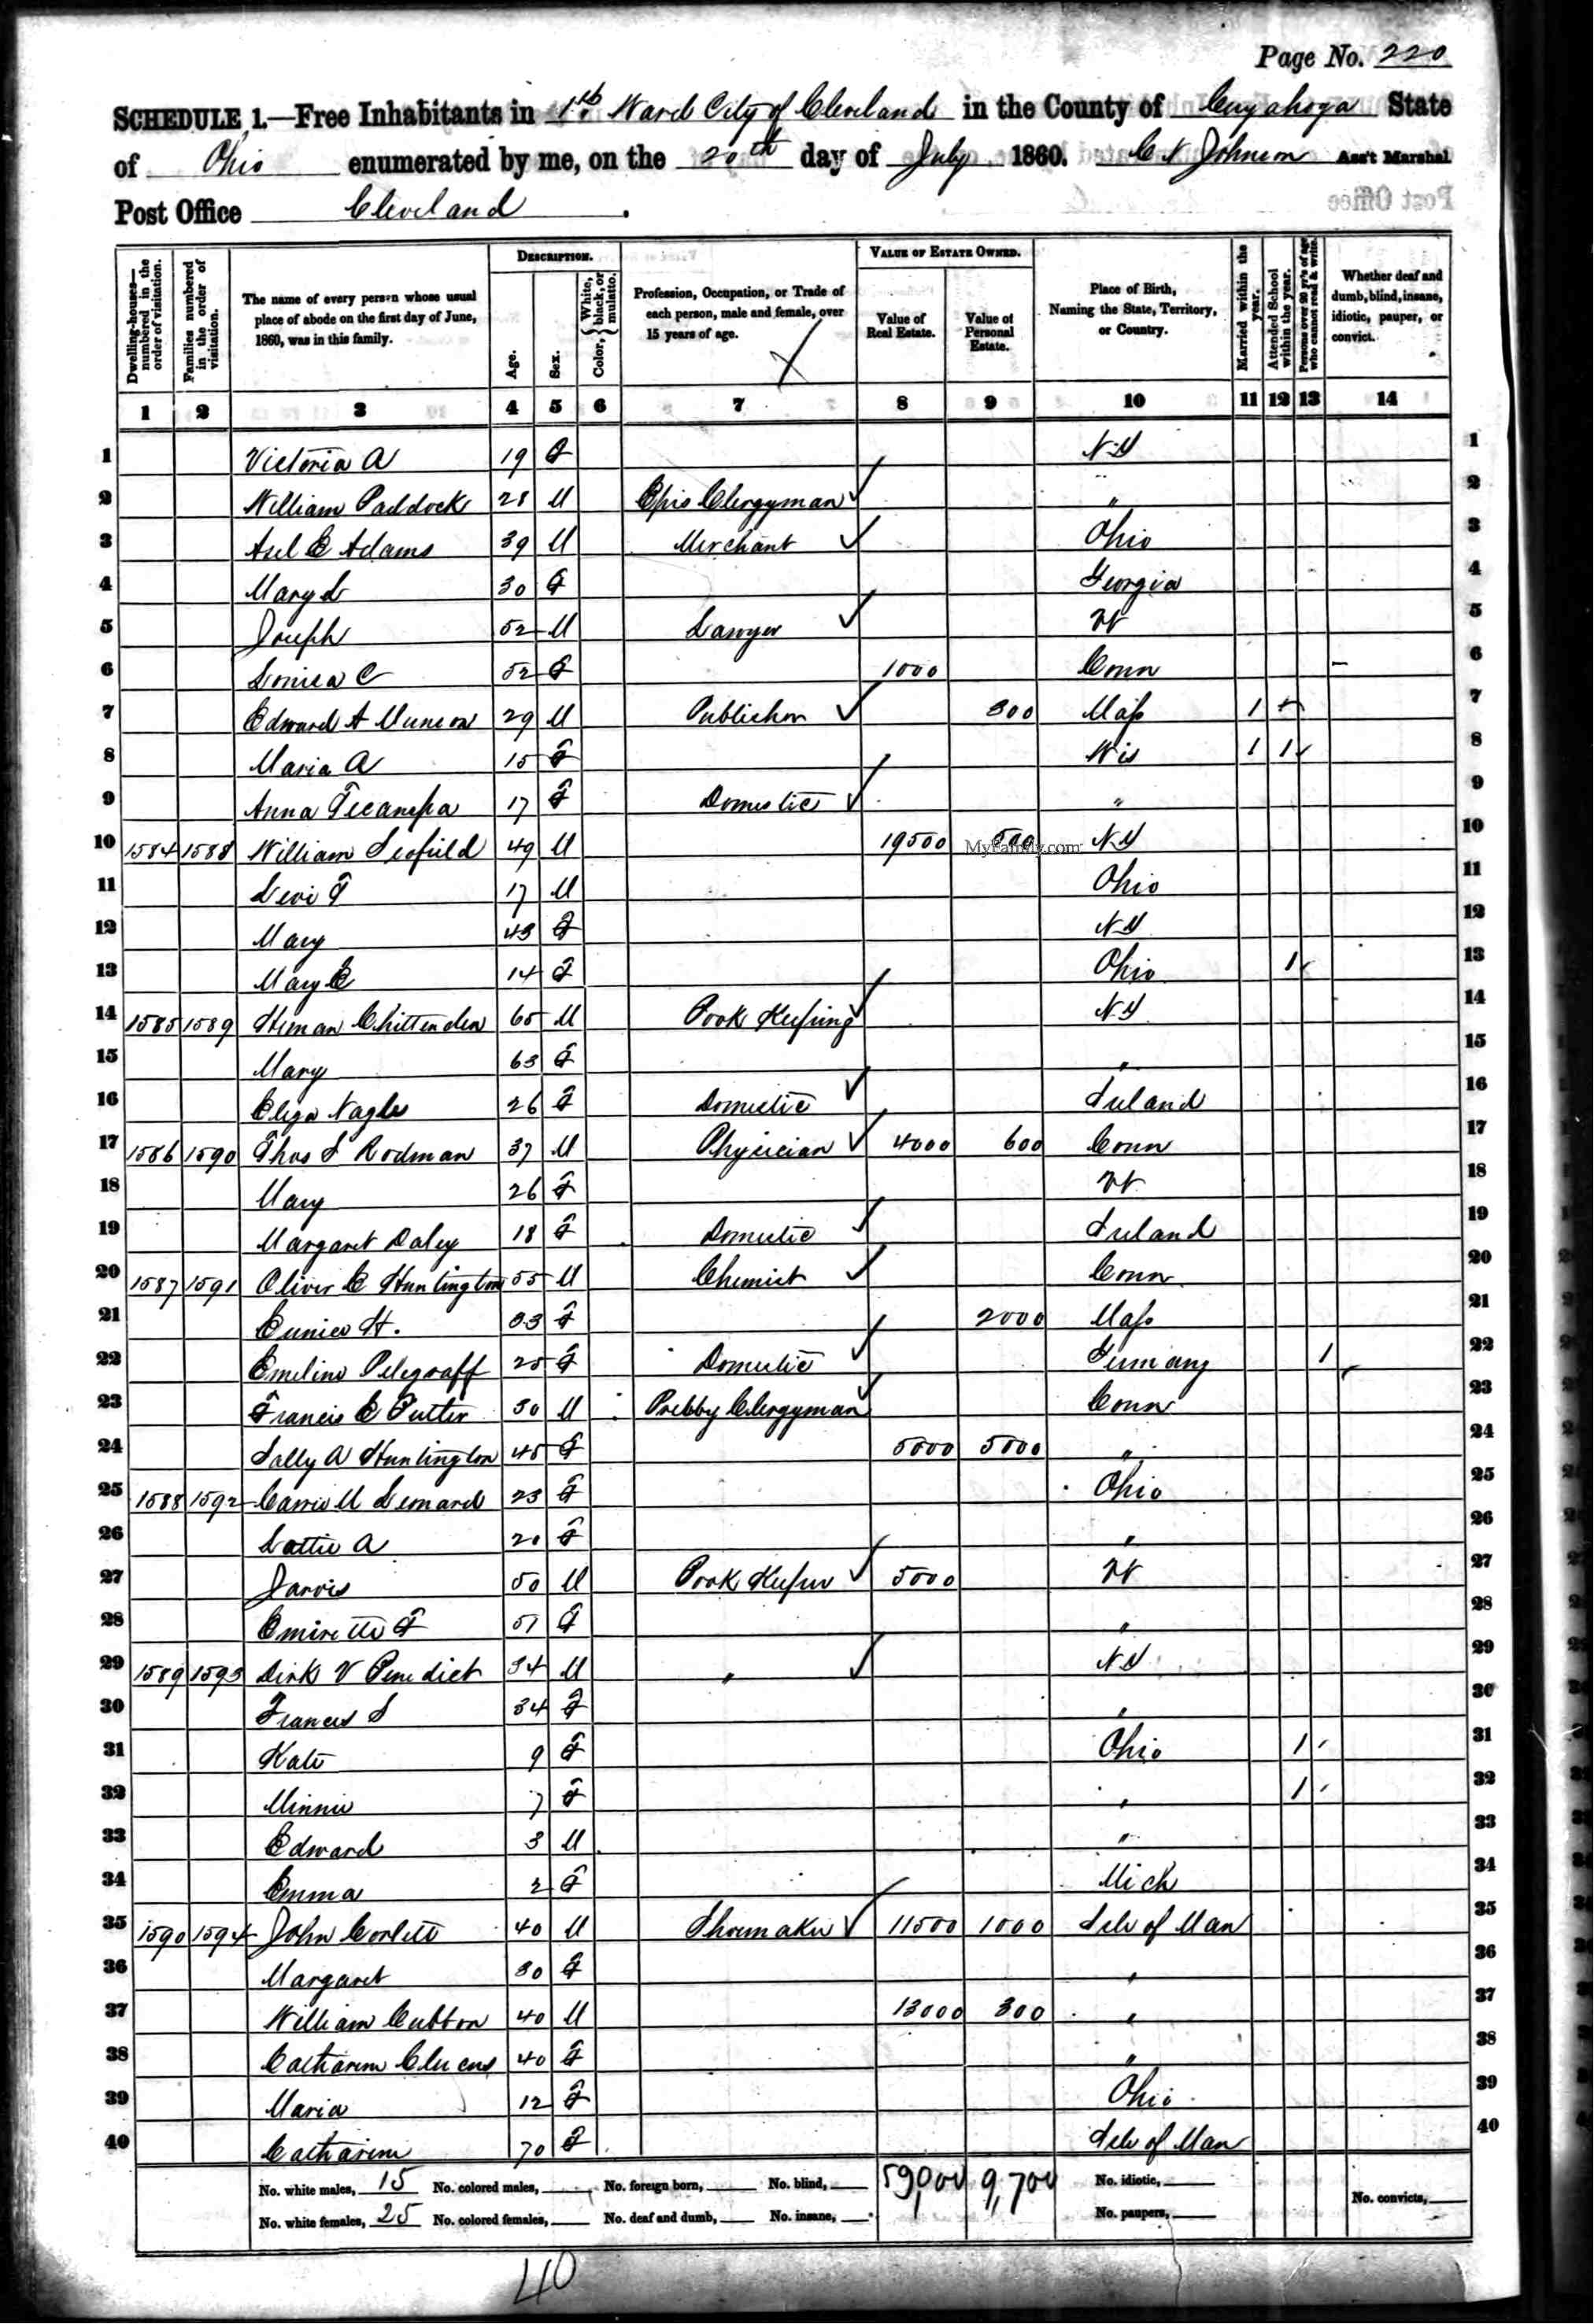 Page No. 220
SCHEDULE 1.—Free Inhabitants in 1st Ward City of Cleveland in the County of Cuyahoga State
of Ohio enumerated by me, on the 20th day of July 1860. C N Johnson Ass't Marshal
Post Office Cleveland.
DESCRIPTION. VALUE OF ESTATE OWNED.
Dwelling-houses—numbered in the order of visitation.
Families numbered in the order of visitation.
The name of every person whose usual place of abode on the first day of June, 1860, was in this family.
Age.
Sex.
Color, White, black, or mulatto.
Profession, Occupation, or Trade of each person, male and female, over 15 years of age.
Value of Real Estate.
Value of Personal Estate.
Place of Birth, Naming the State, Territory, or Country.
Married within the year.
Attended School within the year.
Persons over 20 y'rs of age who cannot read & write.
Whether deaf and dumb, blind, insane, idiotic, pauper, or convict.
1 2 3 4 5 6 7 8 9 10 11 12 13 14
1 Victoria A 19 F N.Y 1
2 William Paddock 28 M Epis Clergyman " 2
3 Asel E Adams 39 M Merchant Ohio 3
4 Mary L 30 F Georgia 4
5 Joseph 52 M Lawyer Vt 5
6 Louisa C 52 F 1000 Conn 6
7 Edward A Munson 29 M Publisher 300 Mass 1 7
8 Maria A 15 F Wis 1 1 8
9 Anna 17 F Domestic " 9
10 1584 1588 William Scofield 49 M 19500 500 N.Y 10
MyFamily.com
11 Levi F 17 M Ohio 11
12 Mary 43 F N.Y 12
13 Mary E 14 F Ohio 1 13
14 1585 1589 Heman Chittenden 65 M Book Keeping N.Y 14
15 Mary 63 F " 15
16 Eliza Nagle 26 F Domestic Ireland 16
17 1586 1590 Thos S Rodman 37 M Physician 4000 600 Conn 17
18 Mary 26 F Vt 18
19 Margaret Daley 18 F Domestic Ireland 19
20 1587 1591 Oliver E Huntington 55 M Chemist Conn 20
21 Eunice H. 33 F 2000 Mass 21
22 Emeline Pelegraff 25 F Domestic Germany 1 22
23 Francis E Butler 30 M Presby Clergyman Conn 23
24 Sally A Huntington 45 F 5000 5000 " 24
25 1588 1592 Carrie M Leonard 23 F Ohio 25
26 Lottie A 20 F " 26
27 Jarvis 50 M Book Keeper 5000 Vt 27
28 Emirette F 51 F " 28
29 1589 1593 Dirk V Benedict 34 M " N.Y 29
30 Frances S 34 F " 30
31 Kate 9 F Ohio 1 31
32 Minnie 7 F " 1 32
33 Edward 3 M " 33
34 Emma 2 F Mich 34
35 1590 1594 John Corlett 40 M Shoemaker 11500 1000 Isle of Man 35
36 Margaret 30 F " 36
37 William Cubbon 40 M 13000 300 " 37
38 Catharine Clucus 40 F " 38
39 Maria 12 F Ohio 39
40 Catharine 70 F Isle of Man 40
No. white males, 15 No. colored males, No. foreign born, No. blind, 59,000 9,700 No. idiotic,
No. white females, 25 No. colored females, No. deaf and dumb, No. insane, No. paupers, No. convicts,
40